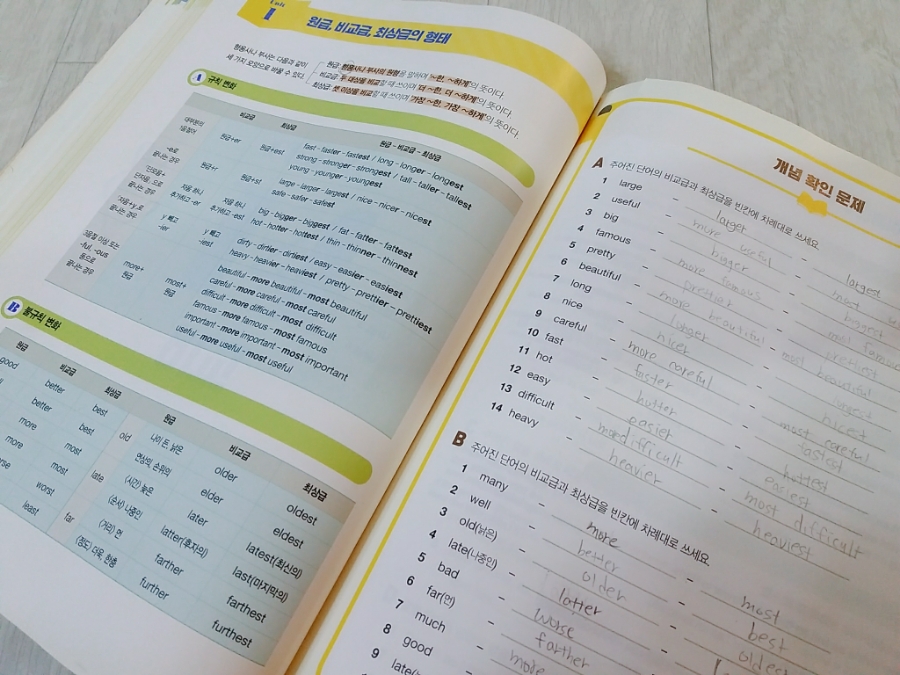 Unit
1
원급, 비교급, 최상급의 형태
형용사나 부사는 다음과 같이
세 가지 모양으로 바뀔 수 있다.
원급: 형용사나 부사의 원형을 말하며 '~한, ~하게'의 뜻이다.
비교급: 두 대상을 비교할 때 쓰이며 '더 ~한, 더 ~하게'의 뜻이다.
최상급: 셋 이상을 비교할 때 쓰이며 '가장 ~한, 가장 ~하게'의 뜻이다.
A 규칙 변화
비교급 최상급 원급 - 비교급 - 최상급
대부분의
원급+er 원급+est
fast - faster - fastest / long - longer - longest
strong - stronger - strongest / tall - taller - tallest
young - younger - youngest
-e로
끝나는 경우
원급+r 원급+st
large - larger - largest / nice - nicer - nicest
safe - safer - safest
끝나는 경우
자음 하나
추가하고 -er
자음 하나
추가하고 -est
big - bigger - biggest / fat - fatter - fattest
hot - hotter - hottest / thin - thinner - thinnest
자음+y로
끝나는 경우
y 빼고
-ier
y 빼고
-iest
dirty - dirtier - dirtiest / easy - easier - easiest
heavy - heavier - heaviest / pretty - prettier - prettiest
-ful, -ous
등으로
끝나는 경우
more+
원급
most+
원급
beautiful - more beautiful - most beautiful
careful - more careful - most careful
difficult - more difficult - most difficult
famous - more famous - most famous
important - more important - most important
useful - more useful - most useful
B 불규칙 변화
원급 비교급 최상급 원급 비교급 최상급
good better best
better best
more most
more most
worst
least
old
나이 든, 낡은 older oldest
연상의, 손위의 elder eldest
late
(시간) 늦은 later latest(최신의)
(순서) 나중인 latter(후자의) last(마지막의)
far
(거리) 먼 farther farthest
(정도) 더욱, 한층 further furthest
개념 확인 문제
A 주어진 단어의 비교급과 최상급을 빈칸에 차례대로 쓰세요.
1 large - larger - largest
2 useful - more useful - most
3 big - bigger - biggest
4 famous - more famous - most famous
5 pretty - prettier - prettiest
6 beautiful - more beautiful - most beautiful
7 long - longer - longest
8 nice - nicer - nicest
9 careful - more careful - most careful
10 fast - faster - fastest
11 hot - hutter - huttest
12 easy - easier - easiest
13 difficult - more difficult - most difficult
14 heavy - heavier - heaviest
B 주어진 단어의 비교급과 최상급을 빈칸에 차례대로 쓰세요.
1 many - more - most
2 well - better - best
3 old(낡은) - older - oldest
4 late(나중인) - latter
5 bad - wurse
6 far(먼) - farther
7 much - more
8 good
9 late(